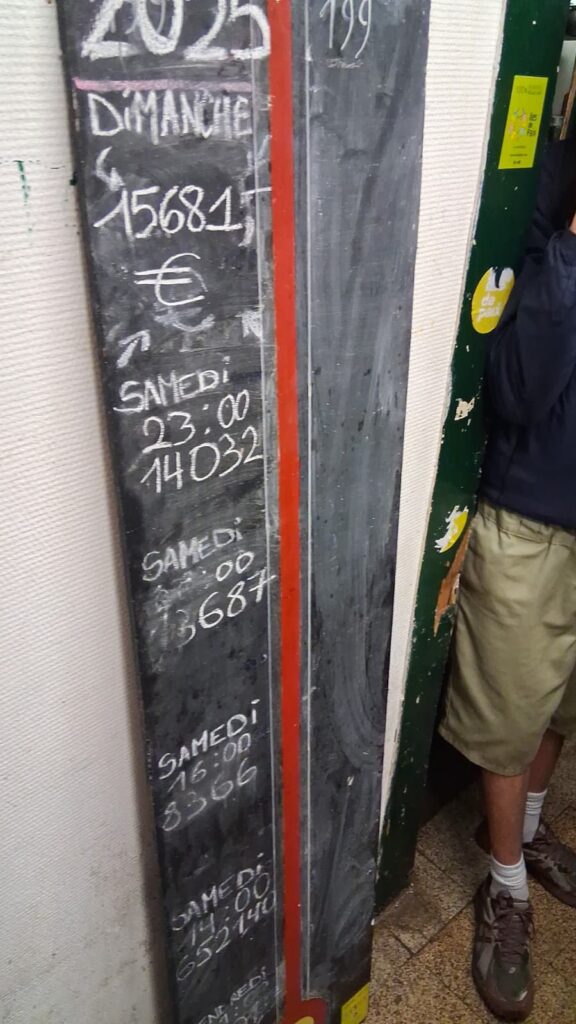 2025
DIMANCHE
15681
€
SAMEDI
23:00
14032
SAMEDI
:00
13687
SAMEDI
16:00
8366
SAMEDI
14:00
652140
199